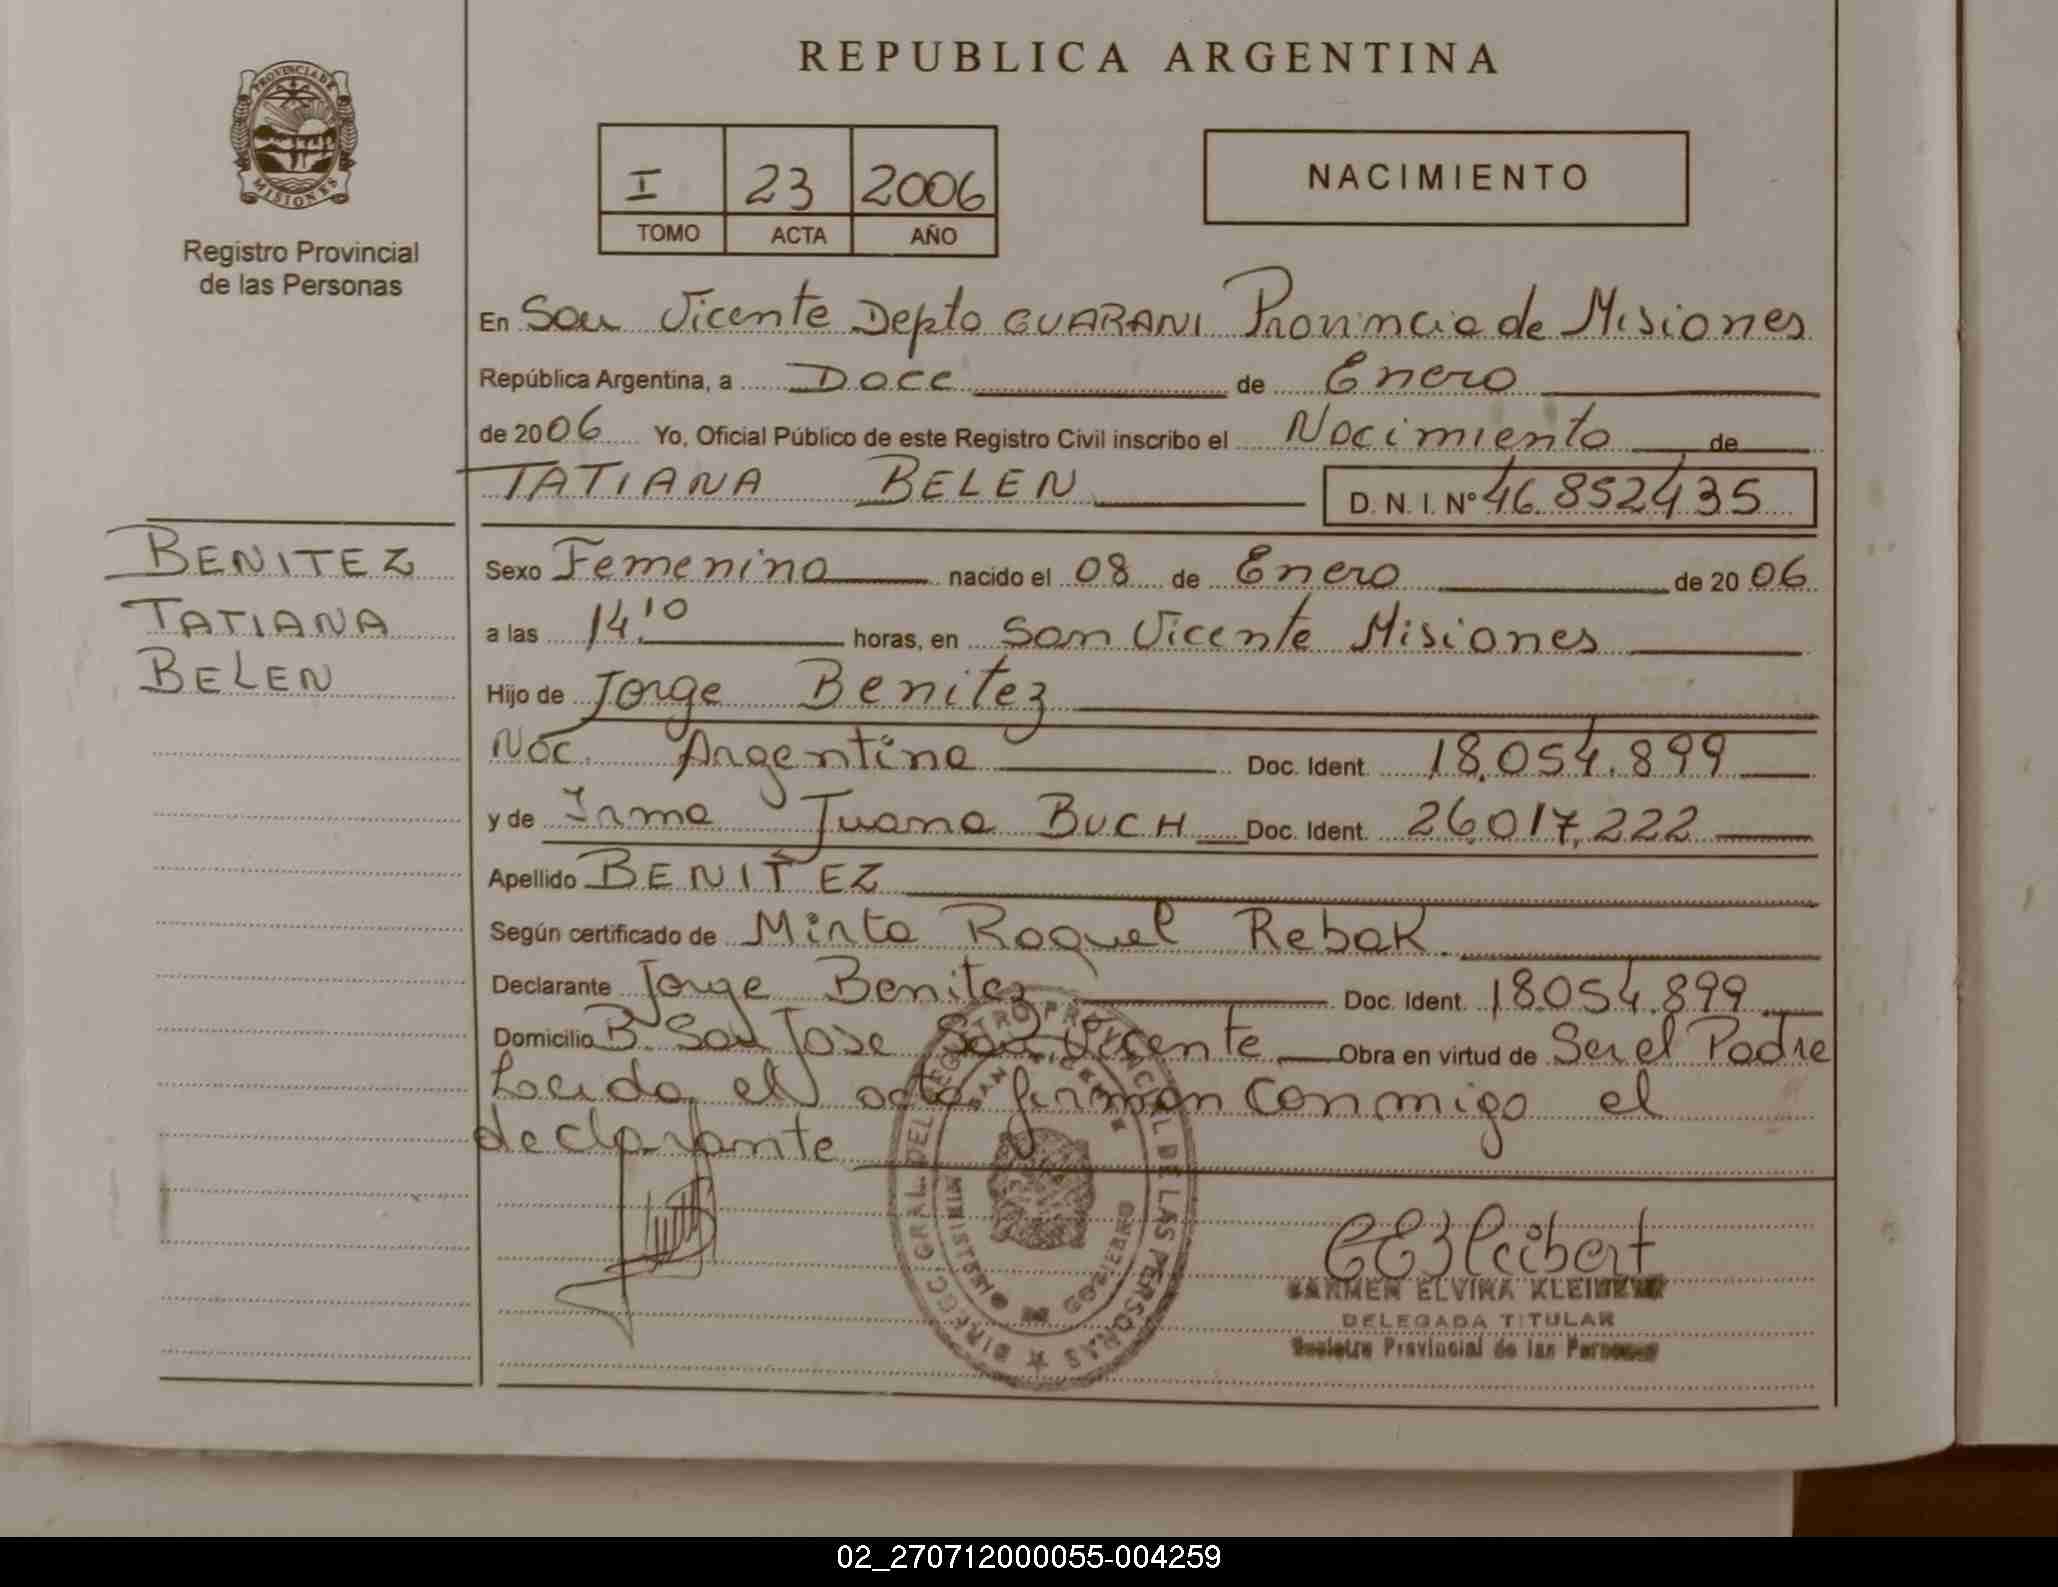 REPUBLICA ARGENTINA
PROVINCIA DE
MISIONES
Registro Provincial
de las Personas
I 23 2006
TOMO ACTA AÑO
NACIMIENTO
En San Vicente Depto GUARANI Provincia de Misiones
República Argentina, a Doce de Enero
de 2006 Yo, Oficial Público de este Registro Civil inscribo el Nacimiento de
TATIANA BELEN D. N. I. Nº 46.852435
BENITEZ
TATIANA
BELEN
Sexo Femenino nacido el 08 de Enero de 2006
a las 14.10 horas, en San Vicente Misiones
Hijo de Jorge Benitez
Nac. Argentina Doc. Ident. 18.054.899
y de Irma Juana BUCH Doc. Ident. 26.017.222
Apellido BENITEZ
Según certificado de Mirta Raquel Rebak
Declarante Jorge Benitez Doc. Ident. 18.054.899
Domicilio B. San Jose San Vicente Obra en virtud de Ser el Padre
Leida el acta firman conmigo el
declarante
DIRECC. GRAL. DEL REGISTRO PROVINCIAL DE LAS PERSONAS
SAN VICENTE
MINISTERIO DE GOBIERNO
CEKleibert
CARMEN ELVIRA KLEIBERT
DELEGADA TITULAR
Registro Provincial de las Personas
02_270712000055-004259